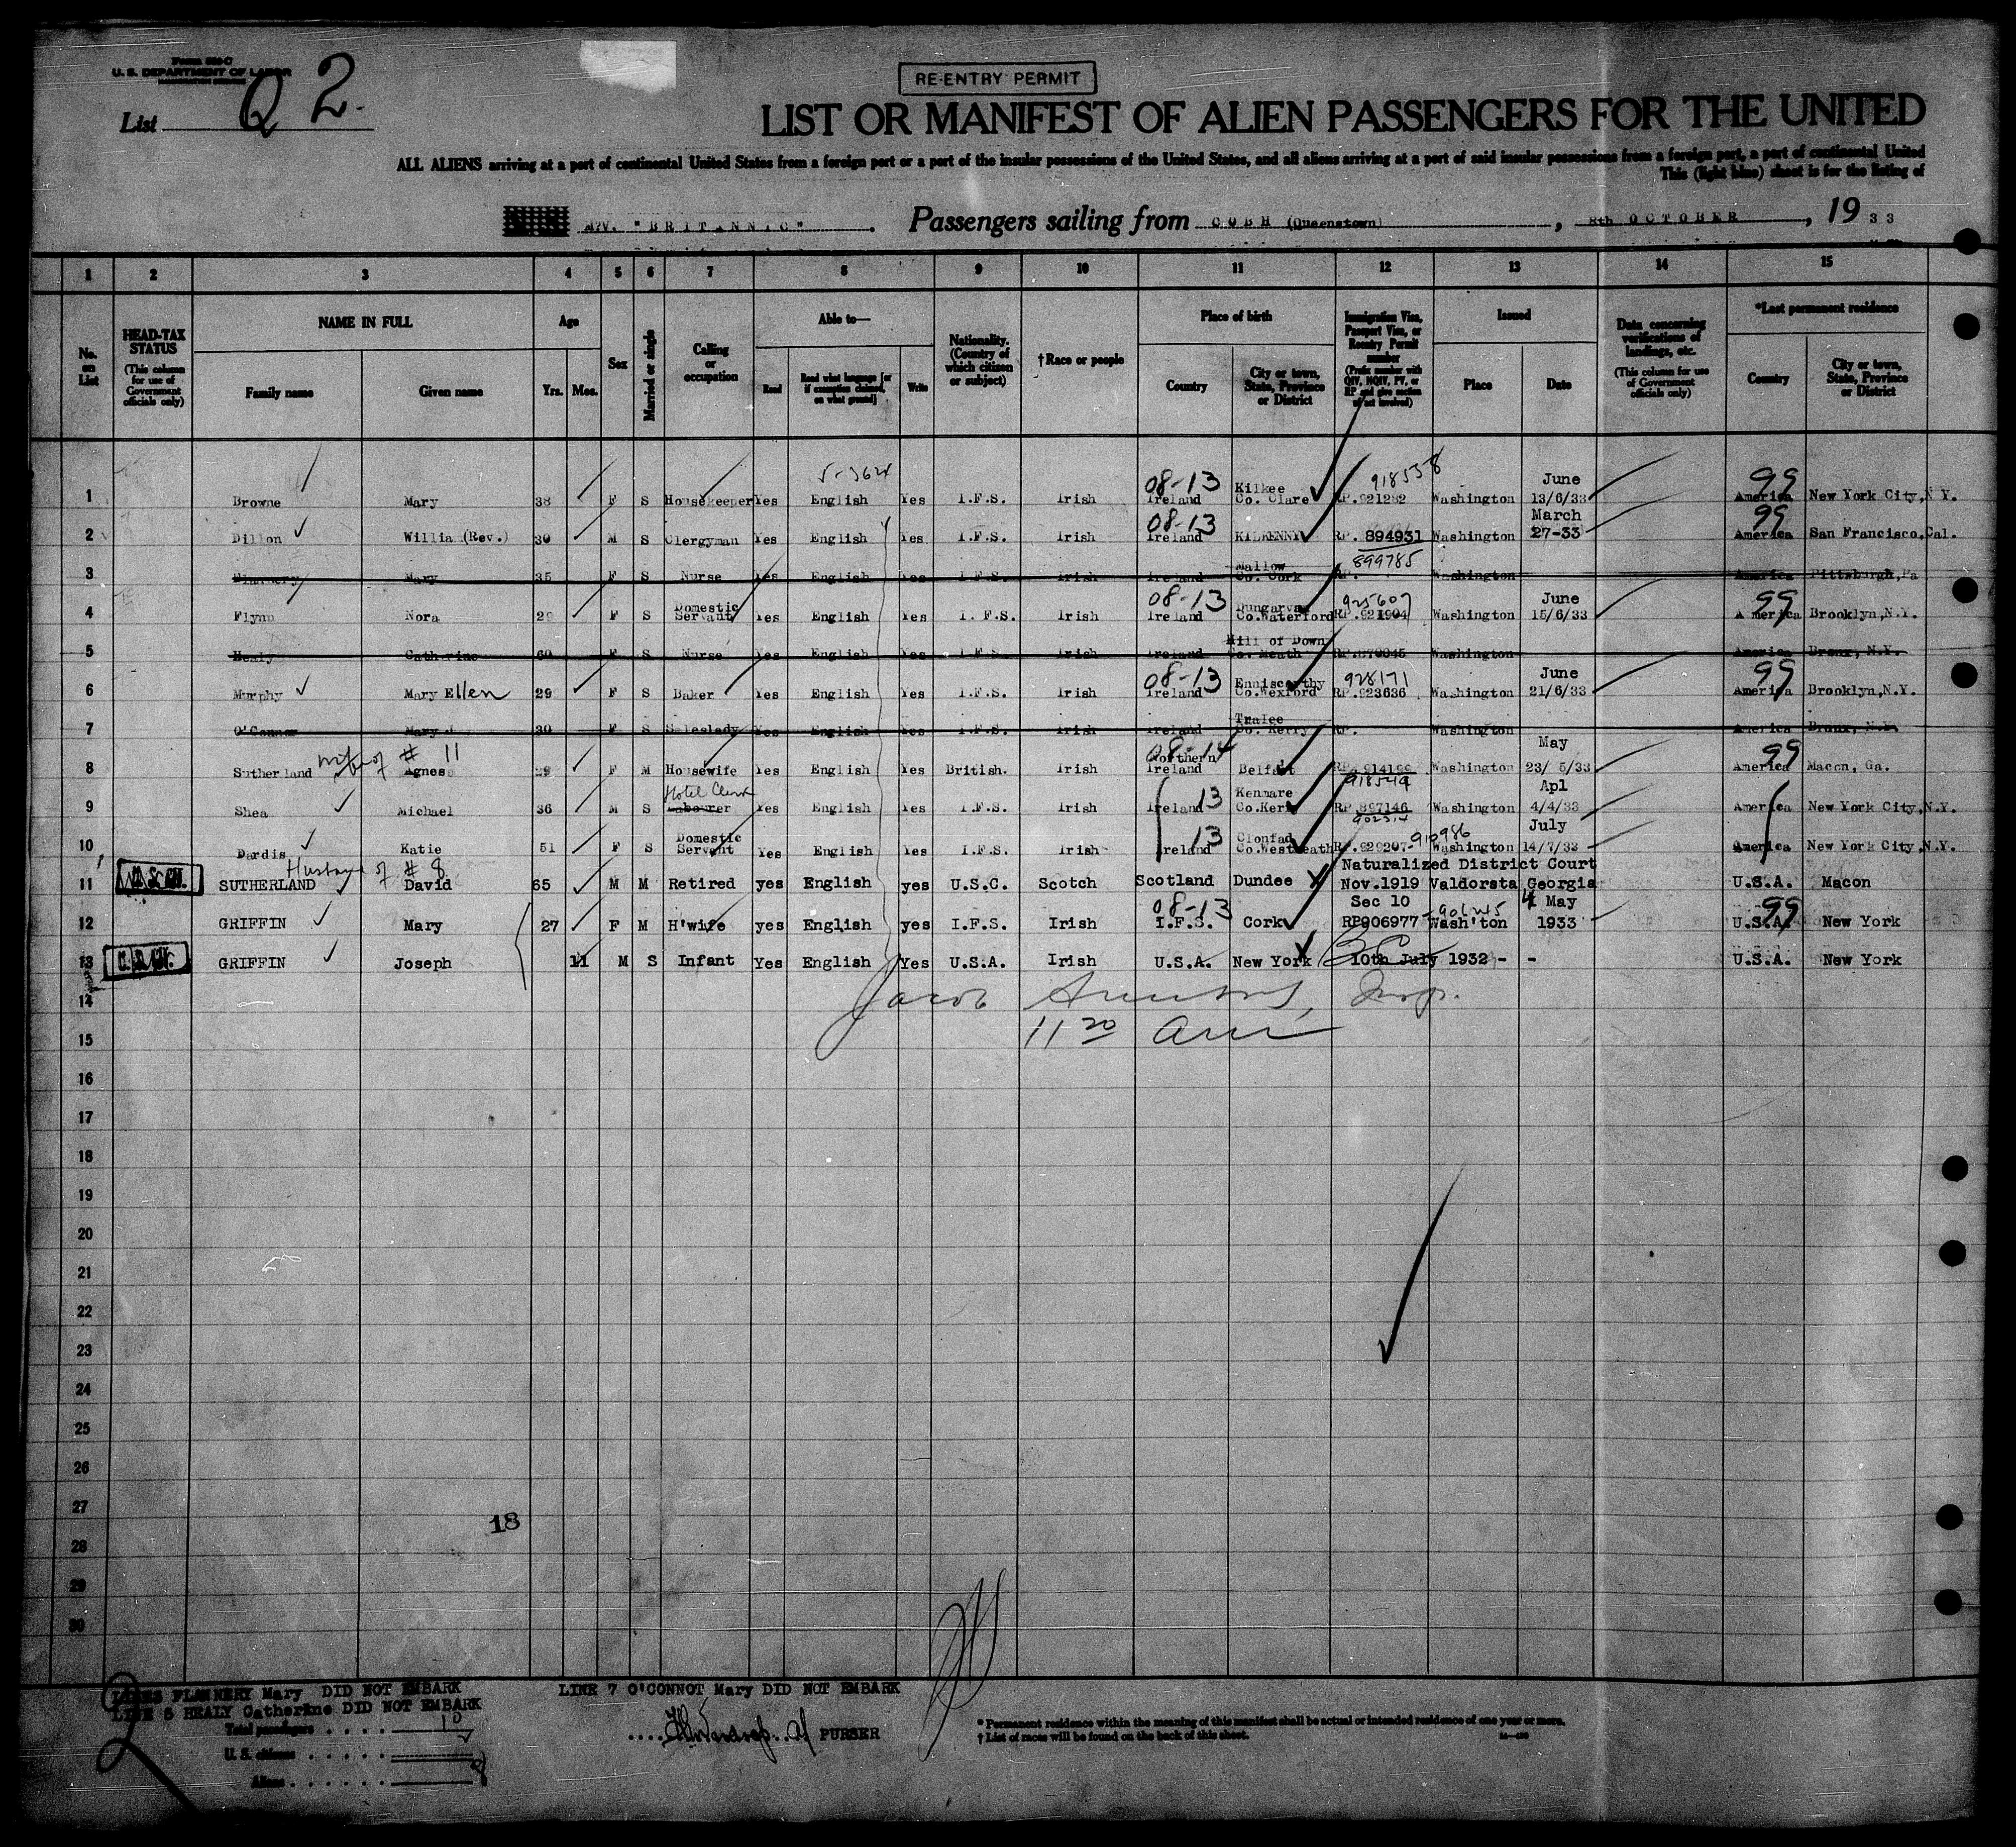 Form 500 C
U. S. DEPARTMENT OF LABOR
List Q 2.
RE-ENTRY PERMIT
LIST OR MANIFEST OF ALIEN PASSENGERS FOR THE UNITED
ALL ALIENS arriving at a port of continental United States from a foreign port or a port of the insular possessions of the United States, and all aliens arriving at a port of said insular possessions from a foreign port, a port of continental United
This (light blue) sheet is for the listing of
M/V. "BRITANNIC" . Passengers sailing from COBH (Queenstown) , 8th OCTOBER , 1933
1 2 3 4 5 6 7 8 9 10 11 12 13 14 15
No. on List
HEAD-TAX STATUS (This column for use of Government officials only)
NAME IN FULL Family name Given name
Age Yrs. Mos.
Sex
Married or single
Calling or occupation
Able to— Read Read what language [or if exemption claimed, on what ground] Write
Nationality. (Country of which citizen or subject)
†Race or people
Place of birth Country City or town, State, Province or District
Immigration Visa, Passport Visa, or Reentry Permit number (Prefix number with QIV, NQIV, PV, or RP and give section of act involved)
Issued Place Date
Data concerning verifications of landings, etc. (This column for use of Government officials only)
*Last permanent residence Country City or town, State, Province or District
5-3624 08-13 Kilkee 918538 June 99
1 Browne Mary 38 F S Housekeeper Yes English Yes I.F.S. Irish Ireland Co. Clare RP.921282 Washington 13/6/33 America New York City, N.Y.
08-13 March 99
2 Dillon Willia (Rev.) 30 M S Clergyman Yes English Yes I.F.S. Irish Ireland KILKENNY RP. 894931 Washington 27-33 America San Francisco, Cal.
Mallow 899785
3 Flannery Mary 35 F S Nurse Yes English Yes I.F.S. Irish Ireland Co. Cork RP. Washington America Pittsburgh, Pa
Domestic 08-13 Dungarvan 925607 June 99
4 Flynn Nora 29 F S Servant Yes English Yes I.F.S. Irish Ireland Co.Waterford RP.921904 Washington 15/6/33 America Brooklyn, N.Y.
Hill of Down
5 Healy Catherine 60 F S Nurse Yes English Yes I.F.S. Irish Ireland Co. Meath RP.870045 Washington America Bronx, N.Y.
08-13 Enniscorthy 928171 June 99
6 Murphy Mary Ellen 29 F S Baker Yes English Yes I.F.S. Irish Ireland Co.Wexford RP.923636 Washington 21/6/33 America Brooklyn, N.Y.
Tralee
7 O'Connor Mary J. 30 F S Saleslady Yes English Yes I.F.S. Irish Ireland Co. Kerry RP. Washington America Bronx, N.Y.
wife of # 11 08-14 Northern May 99
8 Sutherland Agness 29 F M Housewife Yes English Yes British. Irish Ireland Belfast RP.914199 Washington 23/ 5/33 America Macon, Ga.
Hotel Clerk 13 Kenmare 918549 Apl
9 Shea Michael 36 M S Labourer Yes English Yes I.F.S. Irish Ireland Co.Kerry RP.897146 Washington 4/4/33 America New York City, N.Y.
Domestic 13 Clonfad 902314 910986 July
10 Dardis Katie 51 F S Servant Yes English Yes I.F.S. Irish Ireland Co.Westmeath RP.929207- Washington 14/7/33 America New York City, N.Y.
Husband of # 8 Naturalized District Court
11 SUTHERLAND David 65 M M Retired yes English yes U.S.C. Scotch Scotland Dundee Nov.1919 Valdorsta Georgia U.S.A. Macon
08-13 Sec 10 4 May 99
12 GRIFFIN Mary 27 F M H'wife yes English yes I.F.S. Irish I.F.S. Cork RP906977 Wash'ton 1933 U.S.A. New York
13 GRIFFIN Joseph 11 M S Infant Yes English Yes U.S.A. Irish U.S.A. New York 10th July 1932 - - U.S.A. New York
14 Jacob Insp.
15 11 20 am
16
17
18
19
20
21
22
23
24
25
26
27
18
28
29
30
FLANNERY Mary DID NOT EMBARK LINE 7 O'CONNOT Mary DID NOT EMBARK
LINE 5 HEALY Catherine DID NOT EMBARK
Total passengers 10
U. S. citizens 2
Aliens 8
PURSER
* Permanent residence within the meaning of this manifest shall be actual or intended residence of one year or more.
† List of races will be found on the back of this sheet.